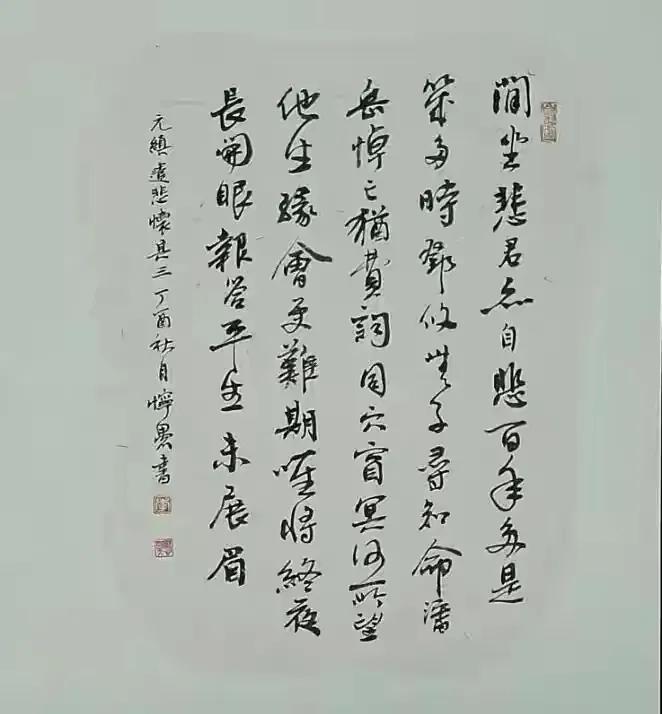 閒坐悲君亦自悲百年多是
幾多時鄧攸無子尋知命潘
岳悼亡猶費詞同穴窅冥何所望
他生緣會更難期唯將終夜
長開眼報答平生未展眉
元縝遣悲懷其三丁酉秋月懧愚書